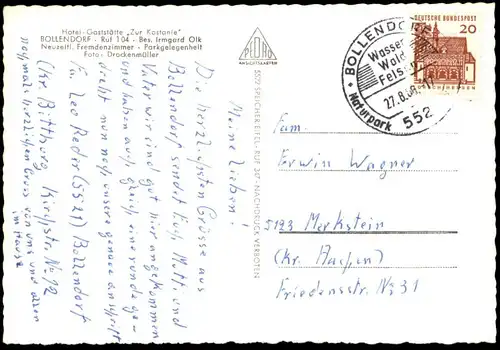 Hotel-Gaststätte „Zur Kastanie"
BOLLENDORF - Ruf 104 - Bes. Irmgard Olk
Neuzeitl. Fremdenzimmer - Parkgelegenheit
Foto: Drockenmüller
ANSICHTSKARTEN
5521 SPLICHER EIFEL · RUF 387 · NACHDRUCK VERBOTEN
Meine Lieben!
Die herzlichsten Grüsse aus
Bollendorf sendet Euch Mutti und
Vater wir sind gut hier angekommen
und haben auch gleich eine runde ge-
dreht nun noch unsere genaue anschrift
Fa. Leo Reder (5521) Bollendorf
(Kr. Bittburg Kirchstr. No 92
nochmal herzlichen Gruss von uns und allen
im Hause
BOLLENDORF
Wasser
Wald
Fels
27.8.
Naturpark
552
DEUTSCHE BUNDESPOST
20
Fam.
Erwin Wagner
5123 Merkstein
(Kr. Aachen)
Friedensstr. No 31